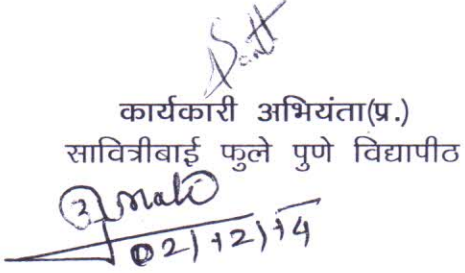 कार्यकारी अभियंता(प्र.)
सावित्रीबाई फुले पुणे विद्यापीठ
02/12/14